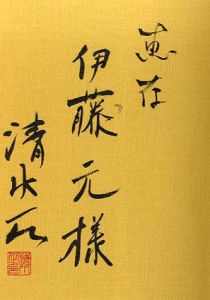 恵存
伊藤元様
清水一